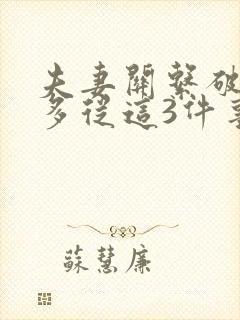 夫妻關繫破
多從這3件事
蘇慧廉